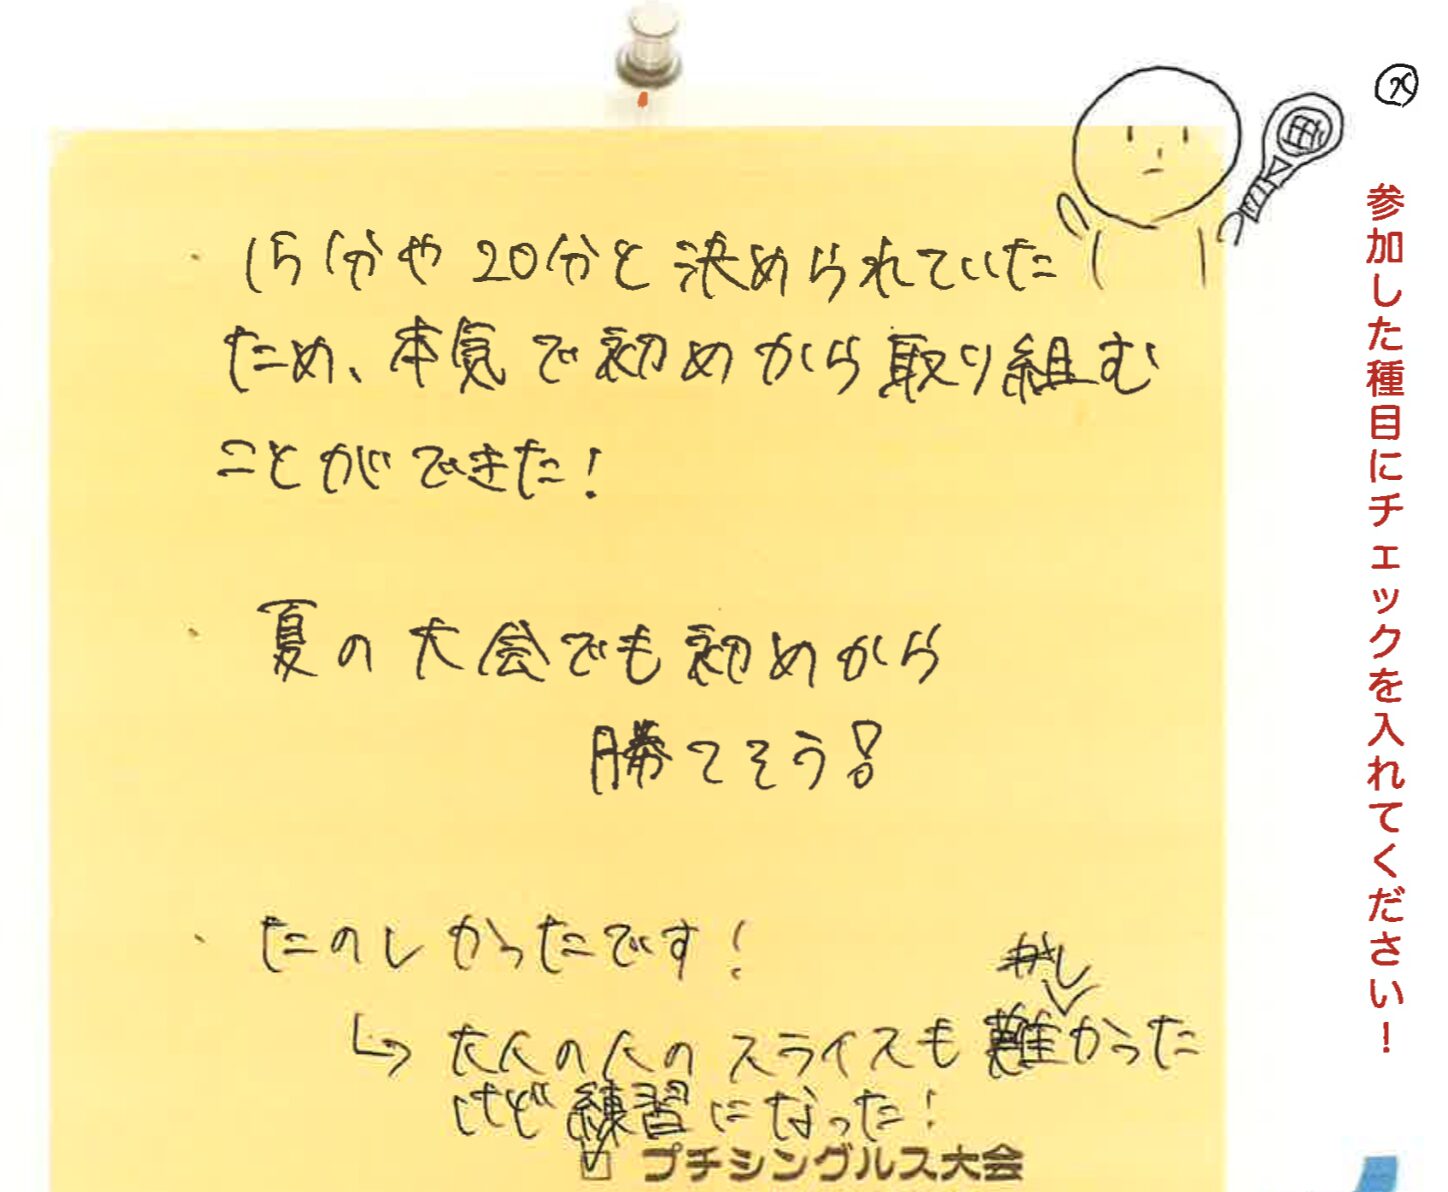 ・15分や20分と決められていた
ため、本気で初めから取り組む
ことができた!
・夏の大会でも初めから
勝てそう!
・たのしかったです!
し
↳大人の人のスライスも難かった
けど練習になった!
プチシングルス大会
参加した種目にチェックを入れてください!